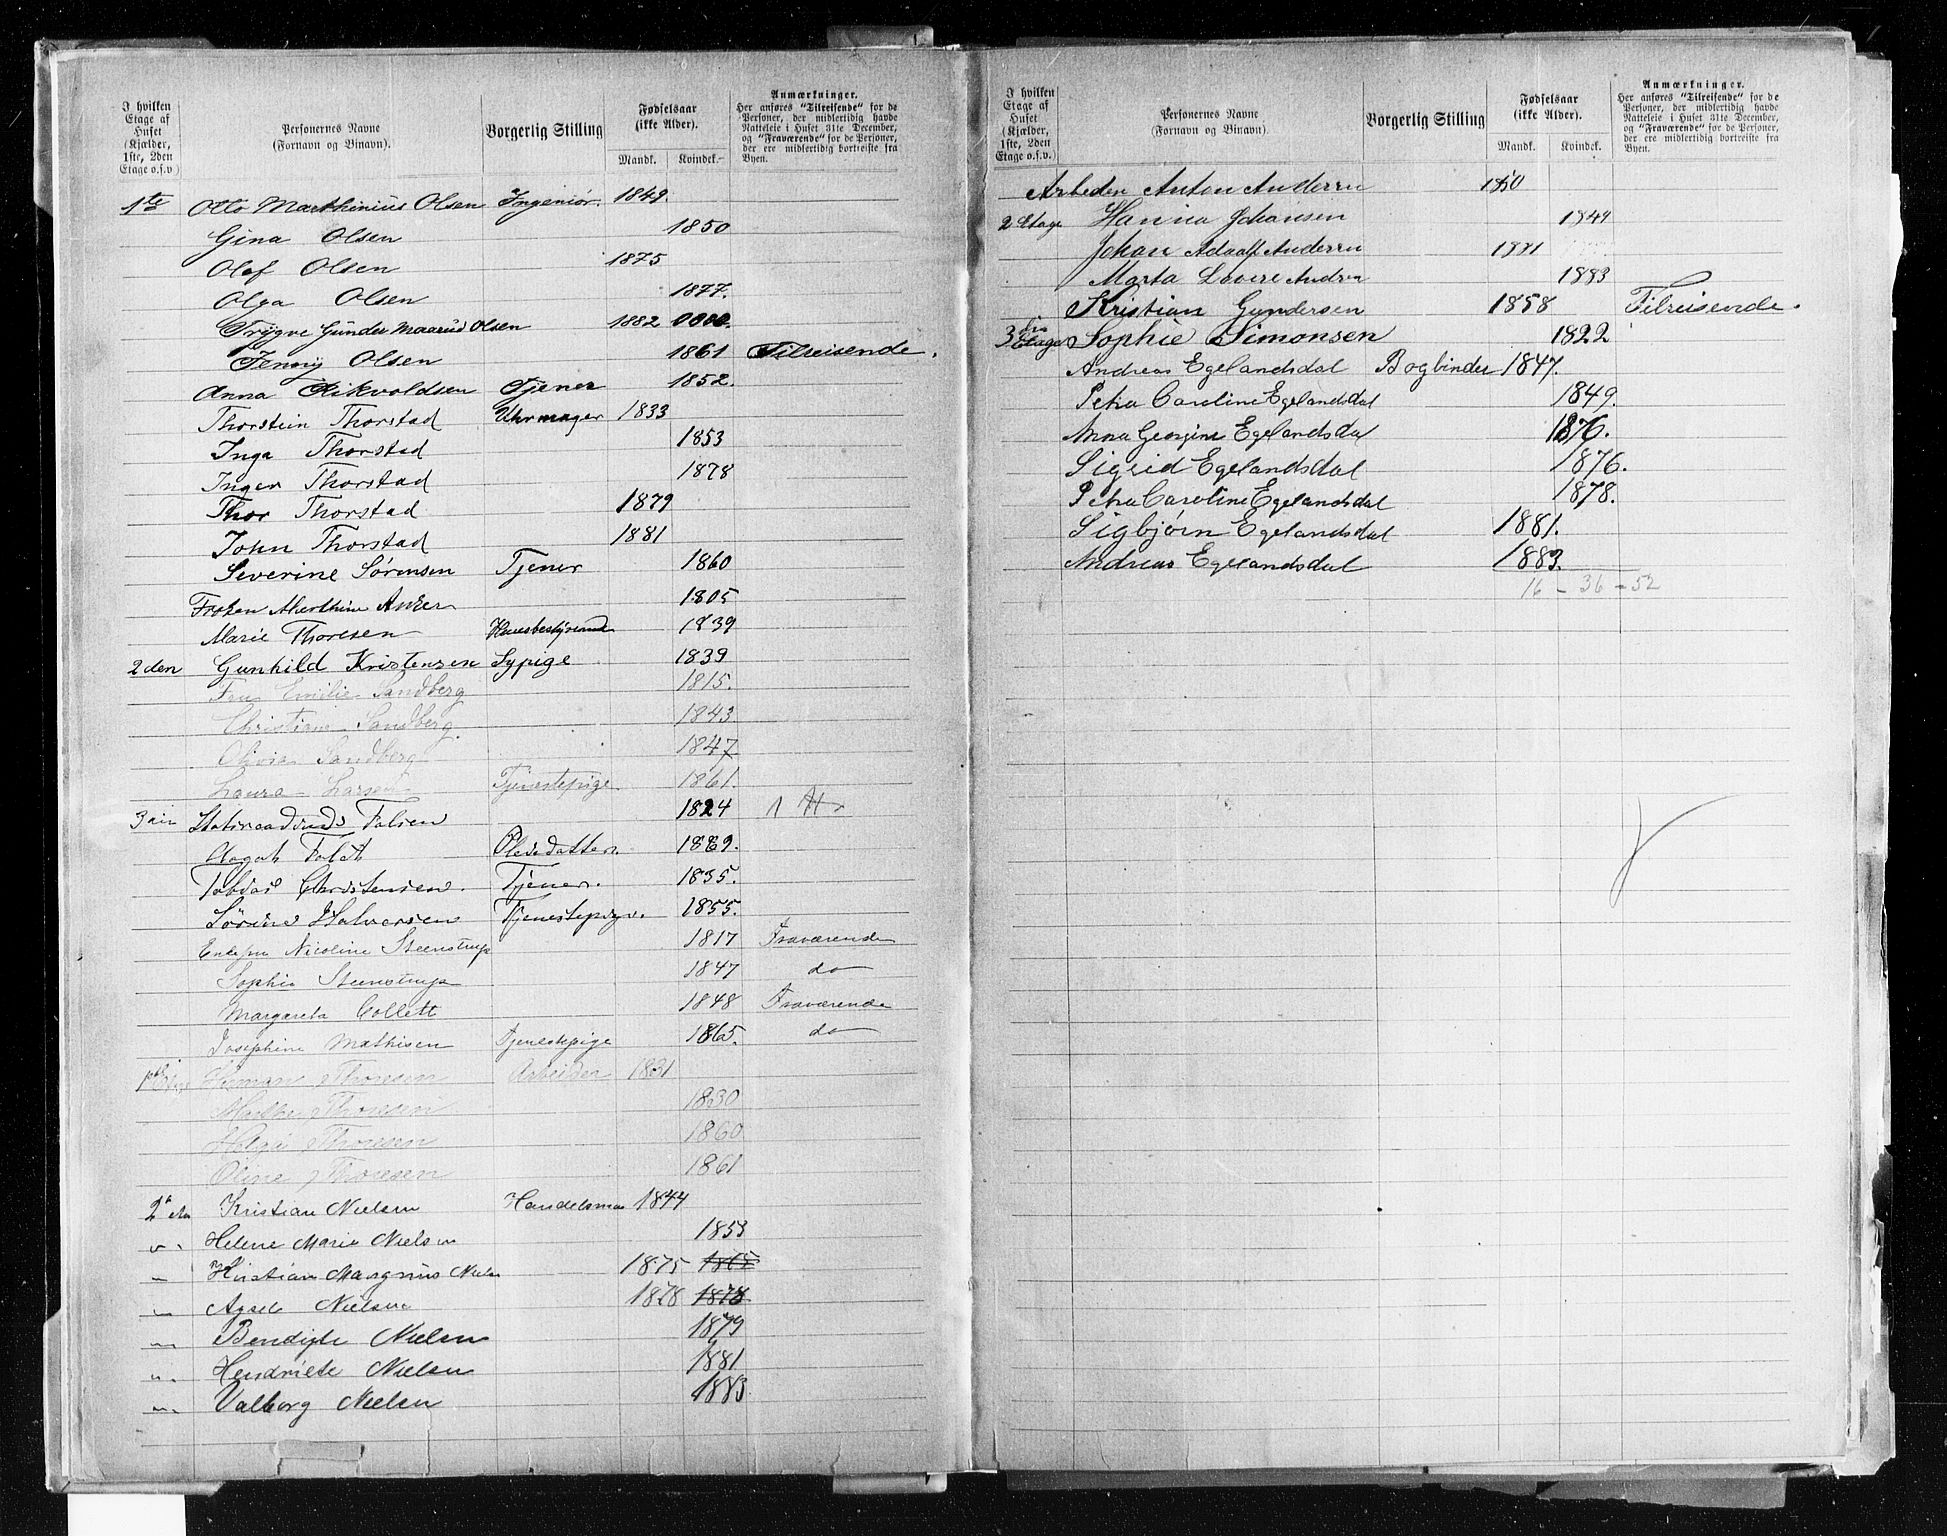 I hvilken Etage af Huset (Kjælder, 1ste, 2den Etage o.s.v)
Personernes Navne (Fornavn og Binavn).
Borgerlig Stilling
Fødselsaar (ikke Alder).
Mandk. Kvindek.
Anmærkninger.
Her anføres "Tilreisende" for de Personer, der midlertidig havde Natteleie i Huset 31te December, og "Fraværende" for de Personer, der ere midlertidig bortreiste fra Byen.
1ste Otto Marthinius Olsen Ingeniør. 1849.
Gina Olsen 1850
Olaf Olsen 1875
Olga Olsen 1877.
Trygve Gunder Maarud Olsen 1882
Jenny Olsen 1861 Tilreisende.
Anna Rikvoldsen Tjener 1852.
Thorstein Thorstad Uhrmager 1833
Inga Thorstad 1853
Inger Thorstad 1878
Thor Thorstad 1879
John Thorstad 1881
Severine Sørensen Tjener 1860
Frøken Marthine Anker 1805
Marie Thoresen Huusbestyrerinde 1839
2den Gunhild Kristensen Sypige 1839
Fru Emilie Sandberg 1815.
Christiane Sandberg. 1843
Olivia Sandberg 1847
Laura Larsen Tjenestepige 1861.
3die Statsraadinde Falsen 1824
Aagot Falch Pleiedatter. 1869.
Christensen. Tjener. 1835.
Sørine Halvorsen Tjenestepige. 1855.
Enkefru Nicoline Steenstrup 1817 Fraværende
Sophie Steenstrup 1847 do
Margareta Collett 1848 Fraværende
Josephine Mathisen Tjenestepige 1865. do
Herman Thoresen Arbeider 1831
Marthe Thoresen 1830
Helga Thoresen 1860
Oline Thoresen 1861
2 eta Kristian Nielsen Handelsman 1844
" Helene Marie Nielsen 1853
" Kristian Magnus Nielsen 1875 1865
" Aksel Nielsen 1878 1878
" Bendigte Nielsen 1879
" Hendriete Nielsen 1881
" Valborg Nielsen 1883
I hvilken Etage af Huset (Kjælder, 1ste, 2den Etage o.s.v.)
Personernes Navne (Fornavn og Binavn).
Borgerlig Stilling
Fødselsaar (ikke Alder).
Mandk. Kvindek.
Anmærkninger.
Her anføres "Tilreisende" for de Personer, der midlertidig havde Natteleie i Huset 31te December, og "Fraværende" for de Personer, der ere midlertidig bortreiste fra Byen.
Arbeder Anton Andersen 1850
2 Etage Hanna Johansen 1849
Johan Adolf Andersen 1881
Marta Lovise Andrea 1883
Kristian Gundersen 1858 Tilreisende.
3die Etage Sophie Simonsen 1822
Andreas Egelandsdal Bogbinder 1847.
Petra Caroline Egelandsdal 1849.
Anna Georgine Egelandsdal 1876.
Sigrid Egelandsdal 1876.
Petra Caroline Egelandsdal 1878.
Sigbjørn Egelandsdal 1881.
Andreas Egelandsdal 1883.
16 - 36 = 52